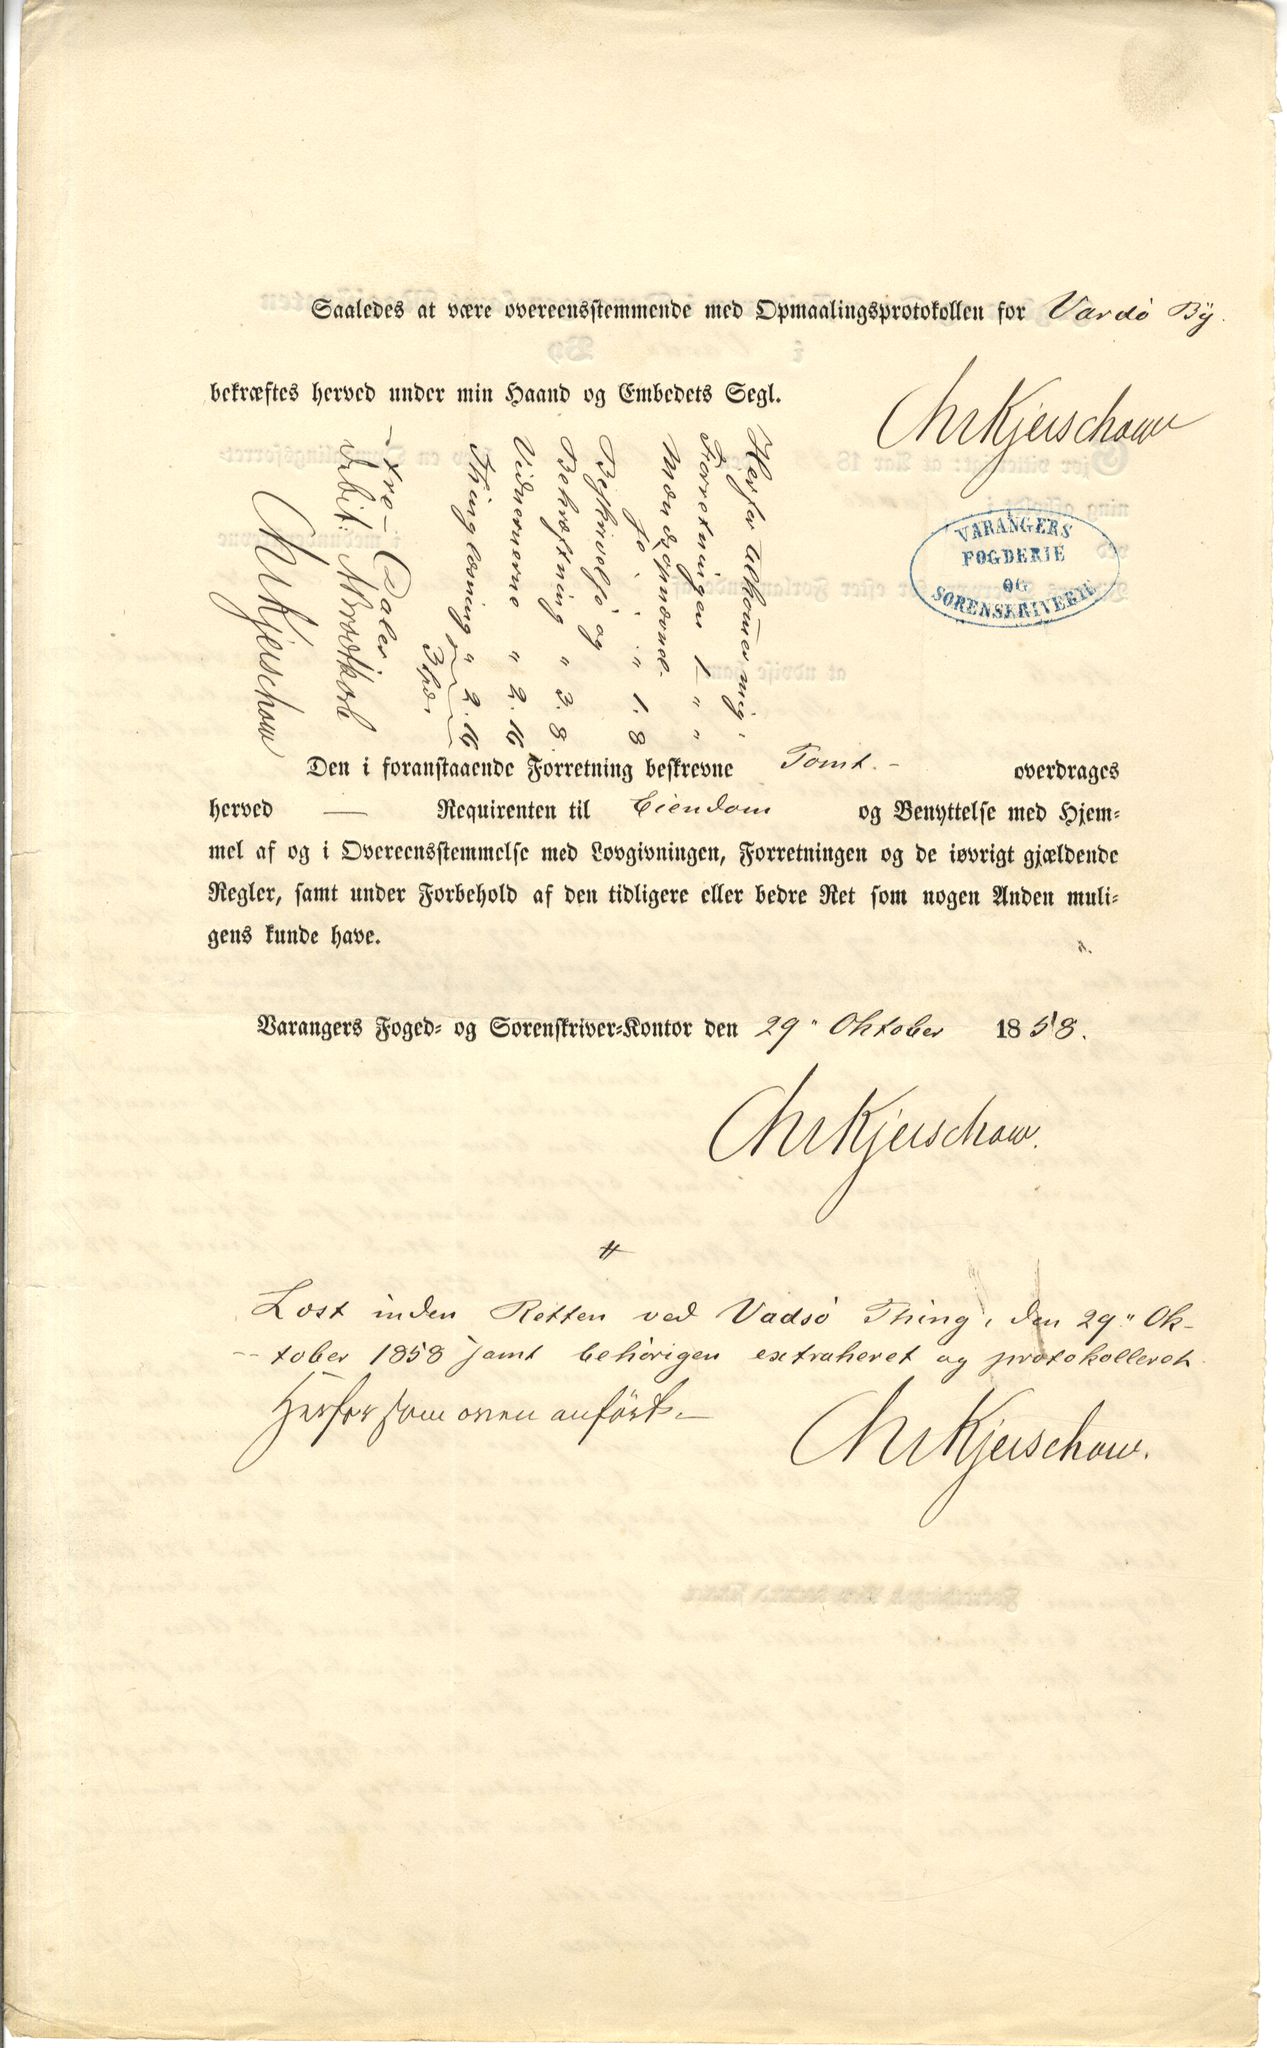 Saaledes at være overeensstemmende med Opmaalingsprotokollen for Vardö By.
bekræftes herved under min Haand og Embedets Segl.
Chr Kjerschow
VARANGERS
FOGDERIE
OG
SORENSKRIVERIE
Herfor tilkommer mig:
Forretningen 1 " "
Mændsopnævnel-
se " 1. 8
Beskrivelse og
Bekræftning " 3. 8
Vidnerne " 2. 16
Thinglæsning " 2. 16
3 Spd.
- tre - Daler
debit:
Chr Kjerschow
Den i foranstaaende Forretning beskrevne Tomt. - overdrages
herved — Requirenten til Eiendom og Benyttelse med Hjem-
mel af og i Overeensstemmelse med Lovgivningen, Forretningen og de iøvrigt gjældende
Regler, samt under Forbehold af den tidligere eller bedre Ret som nogen Anden muli-
gens kunde have.
Varangers Foged- og Sorenskriver-Kontor den 29" Oktober 1858.
Chr Kjerschow.
Læst inden Retten ved Vadsö Thing, den 29" Ok-
-tober 1858 samt behörigen extraheret og protokolleret.
Herfor som oven anfört. -
Chr Kjerschow.